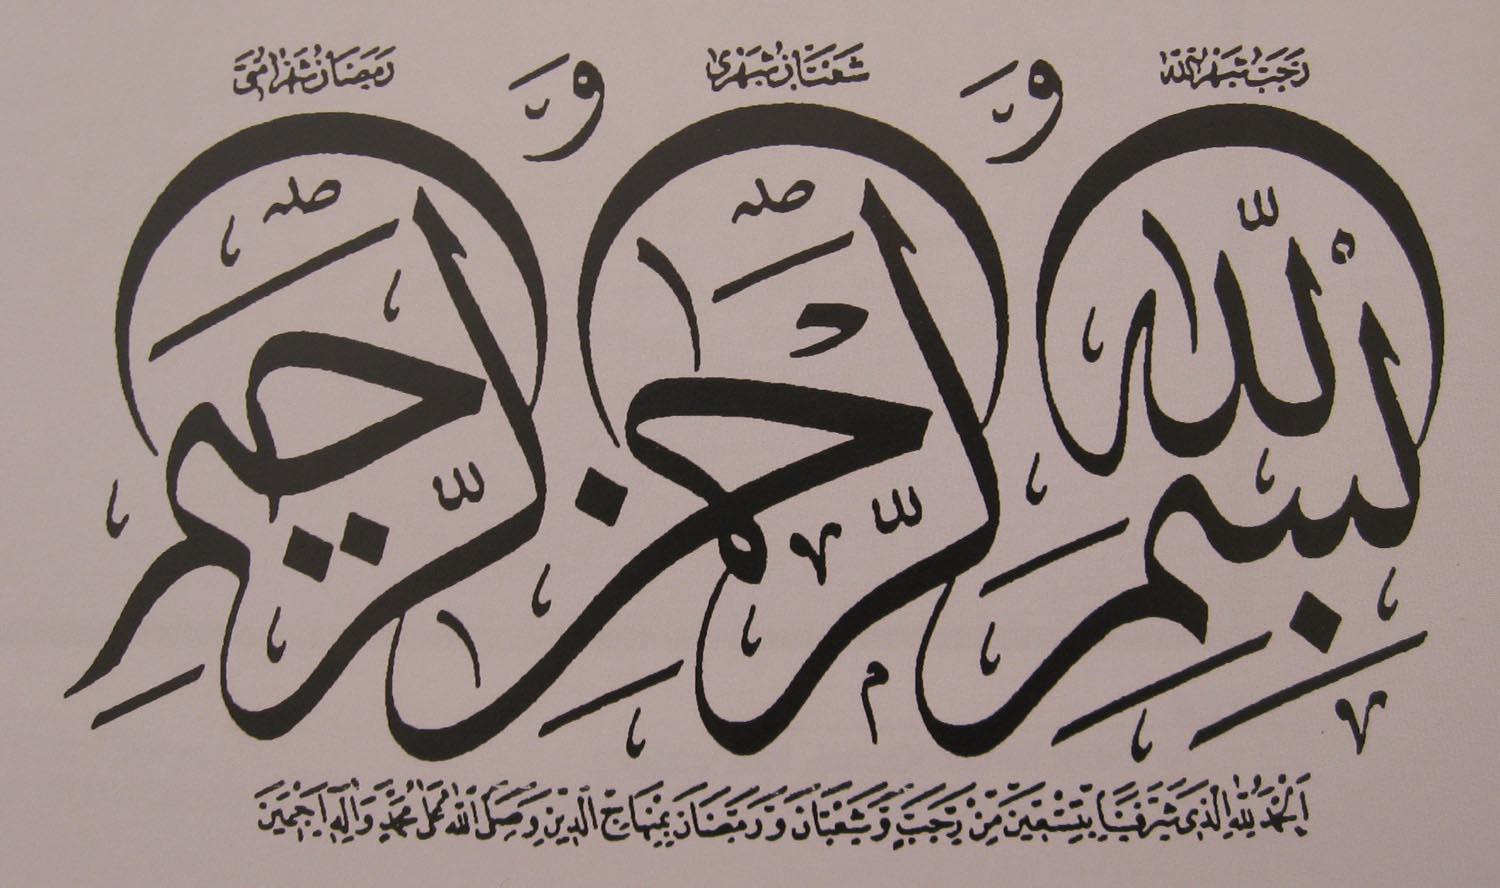 رَجَبُ شَهْرُ اللّٰه وَ شَعْبَانُ شَهْرِى وَ رَمَضَانُ شَهْرُ اُمَّتِى
بِسْمِ اللّٰهِ الرَّحْمٰنِ الرَّحِيمِ
اَلْحَمْدُ لِلّٰهِ الَّذِى شَرَّفَنَا بِتِسْعِينَ مِنْ رَجَبَ وَشَعْبَانَ وَرَمَضَانَ بِمِنْهَاجِ الدِّينِ وَصَلَّى اللّٰهُ عَلَى مُحَمَّدٍ وَاٰلِهِ اَجْمَعِينَ